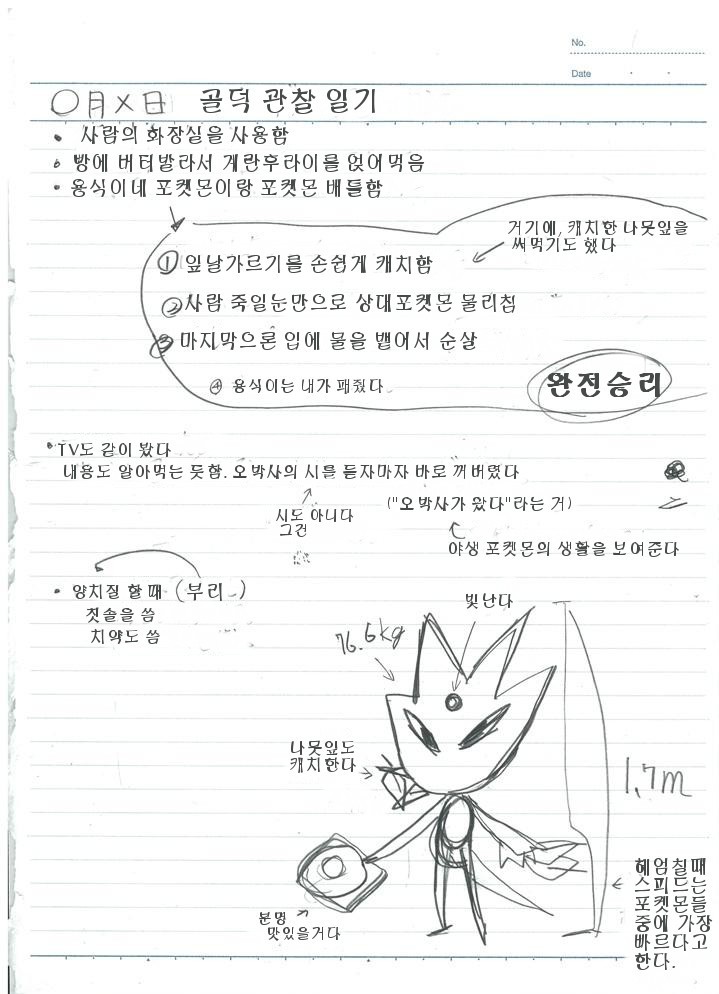 No.
Date
○月×日 골덕 관찰 일기
• 사람의 화장실을 사용함
• 빵에 버터발라서 계란후라이를 얹어먹음
• 용식이네 포켓몬이랑 포켓몬 배틀함
거기에, 캐치한 나뭇잎을
써먹기도 했다
① 잎날가르기를 손쉽게 캐치함
② 사람 죽일눈만으로 상대포켓몬 물리침
③ 마지막으론 입에 물을 뱉어서 순살
④ 용식이는 내가 패줬다
완전승리
• TV도 같이 봤다
내용도 알아먹는 듯함. 오박사의 시를 듣자마자 바로 꺼버렸다
시도 아니다
그건
("오박사가 왔다"라는 거)
야생 포켓몬의 생활을 보여준다
• 양치질 할때 (부리)
칫솔을 씀
치약도 씀
빛난다
76.6kg
나뭇잎도
캐치한다
1.7m
분명
맛있을거다
헤엄칠때
스피드는
포켓몬들
중에 가장
빠르다고
한다.